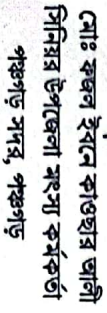 মোঃ রুহুল ইসলাম কাওছার আলী
সিনিয়র উপজেলা মৎস্য কর্মকর্তা
পঞ্চগড় সদর, পঞ্চগড়